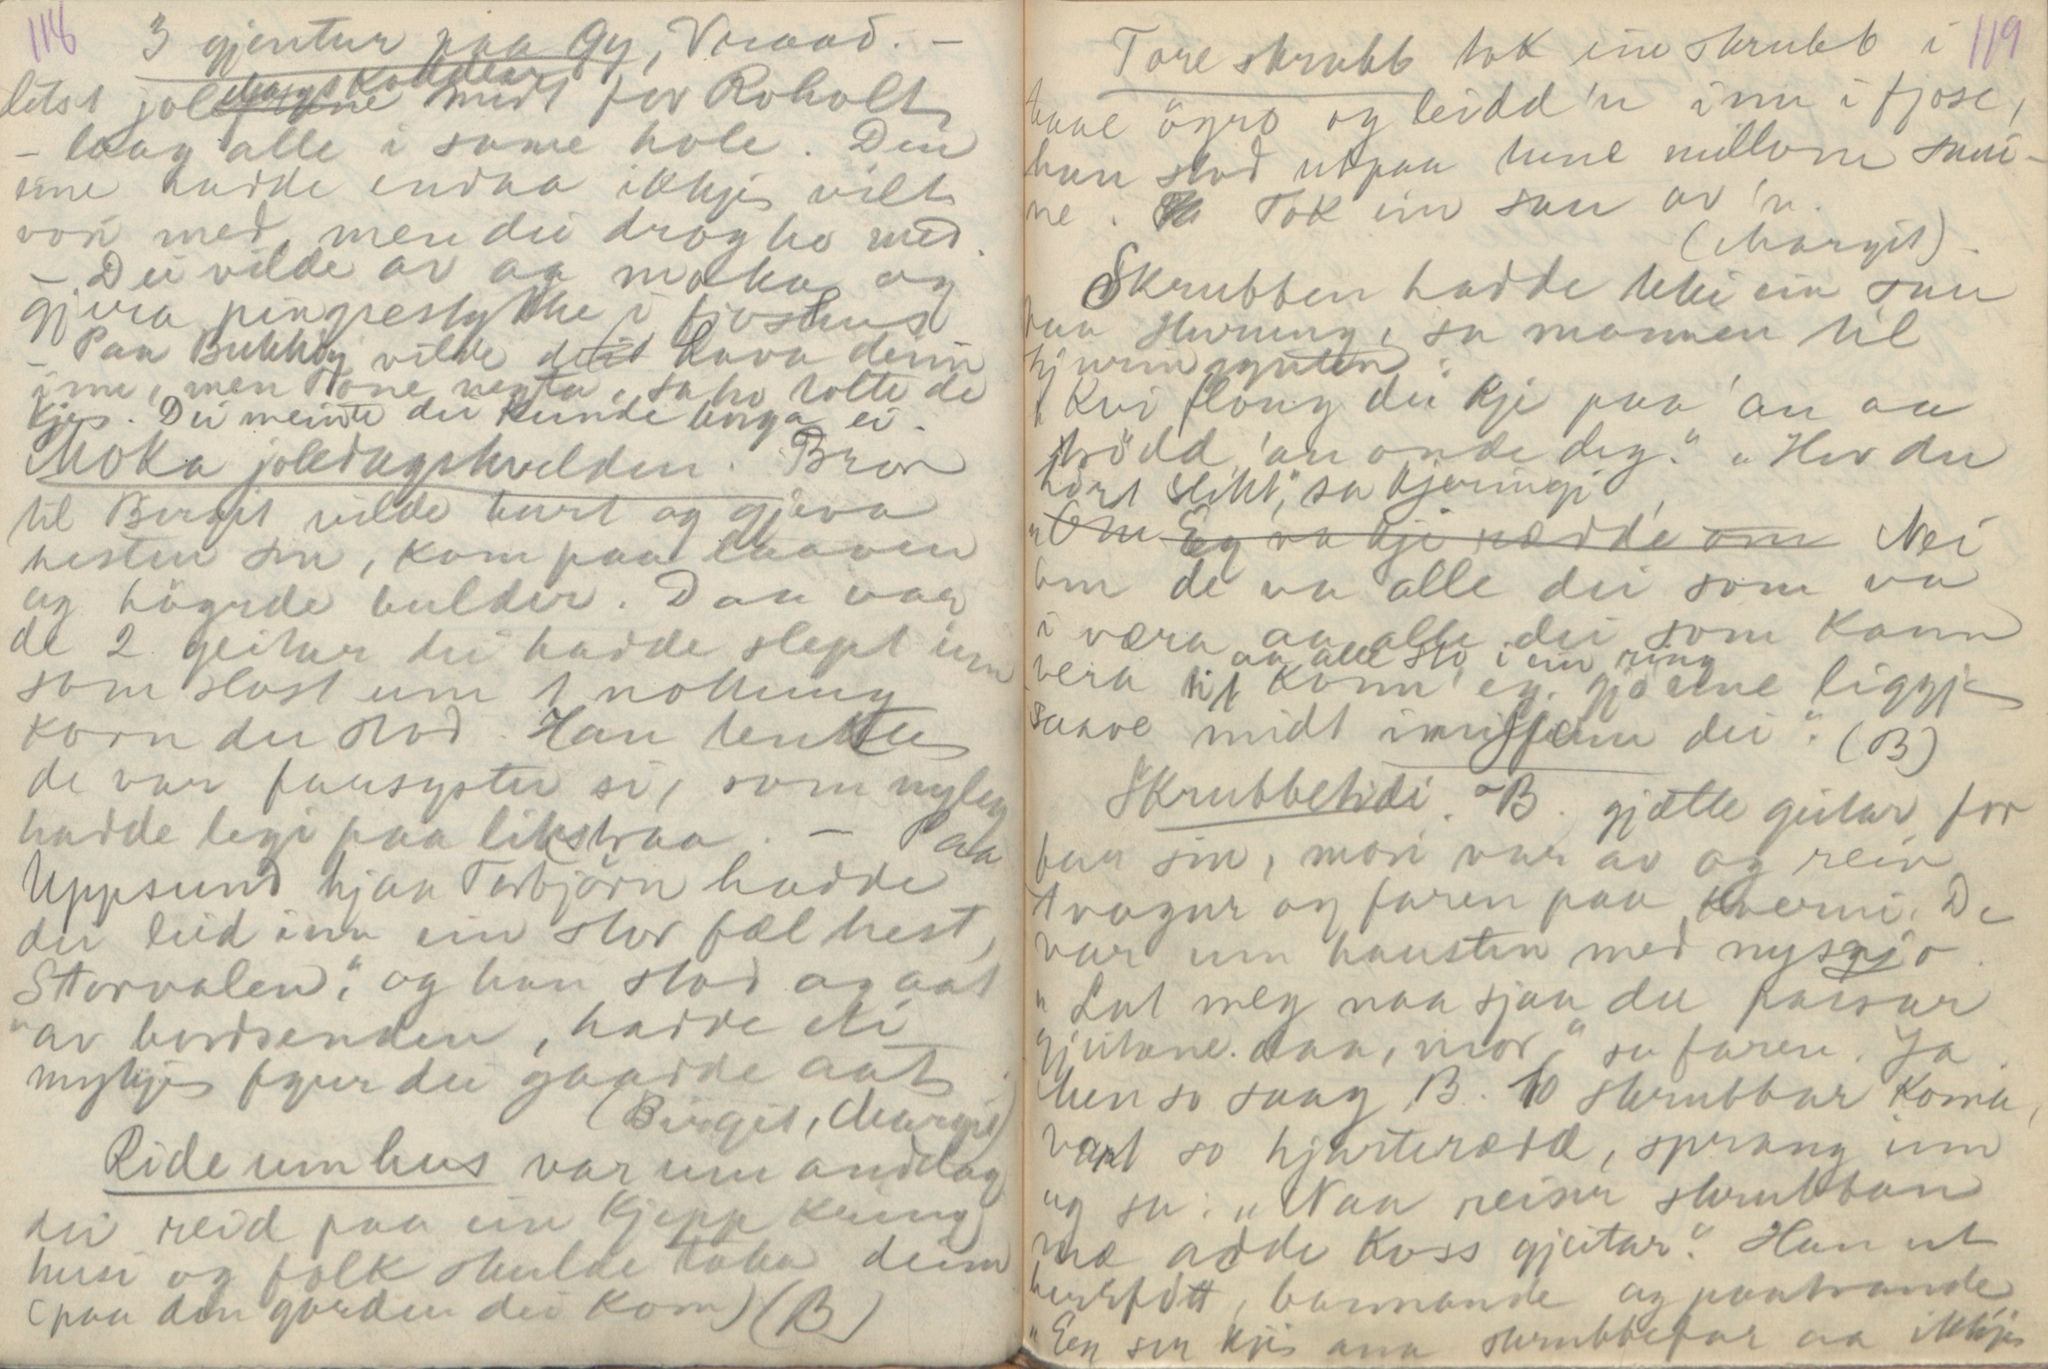 118
3 gjentur paa Gy, Vraad. –
letst joledagskvelden midt for Roholt
– laag alle i same hole. Den
eine hadde endaa ikkje vilt
vori med, men dei drog ho med.
– Dei vilde av aa moka og
gjera pingrestykke i fjoshus
– Paa Bukkøy vilde dei lava deim
inn, men Tone negta, sa ho tolte de
kje. Dei meinte dei kunde berga ei.
Moka joledagskvelden. Bror
til Birgit vilde burt og gjeva
hesten sin, kom paa laaven
og høyrde bulder. Daa var
de 2 geitur dei hadde slept inn
som slost um 1 nottung
korn der stod. Han tenkte
de var farsyster si, som nyleg
hadde legi paa likstraa. – Paa
Uppsund hjaa Torbjörn hadde
dei leid inn ein stor fæl hest,
"Storvalen", og han stod og aat
av bordsenden, hadde eti
mykje fyrr dei gaadde aat
(Birgit, Margit)
Ride um hus var um anddag
dei reid paa ein kjepp kring
husi og folk skulde taka deim
(paa den garden dei kom) (B)
119
Tore skrubb tok ein skrubb i
öyro og leidd'n inn i fjose,
han stod utpaa tune millom saui-
ne. Tok ein sau av'n.
(Margit) –
Skrubben hadde teki ein sau
paa sterning, sa mannen til
"Kvi flaug du kje paa 'an aa
'an onde deg." "Hev du
hört slikt," sa kjeringi
"Om Eg va kje rædde om Nei
om de va alle dei som va
i væra aa alle dei som kann
vera til aa alle sto i ein ring
konn' eg gjönne liggje
saave midt imillom dei". (B)
Skrubbetidi. B. gjætte geitar for
far sin, mori var av og reiv
kvagur og faren paa kverni. De
var um hausten med nysnjo.
"Lat meg naa sjaa du passar
gjeitane daa, mor," sa faren. Ja
men so saag B. 10 skrubbar koma,
vart so hjarterædd, sprang inn
og sa: "Naa reiser skrubban
mæ adde koss gjeitar". Han ut
berrfött, bannande og paatrande
"Eg ser kje ana skrubbefar aa ikkje